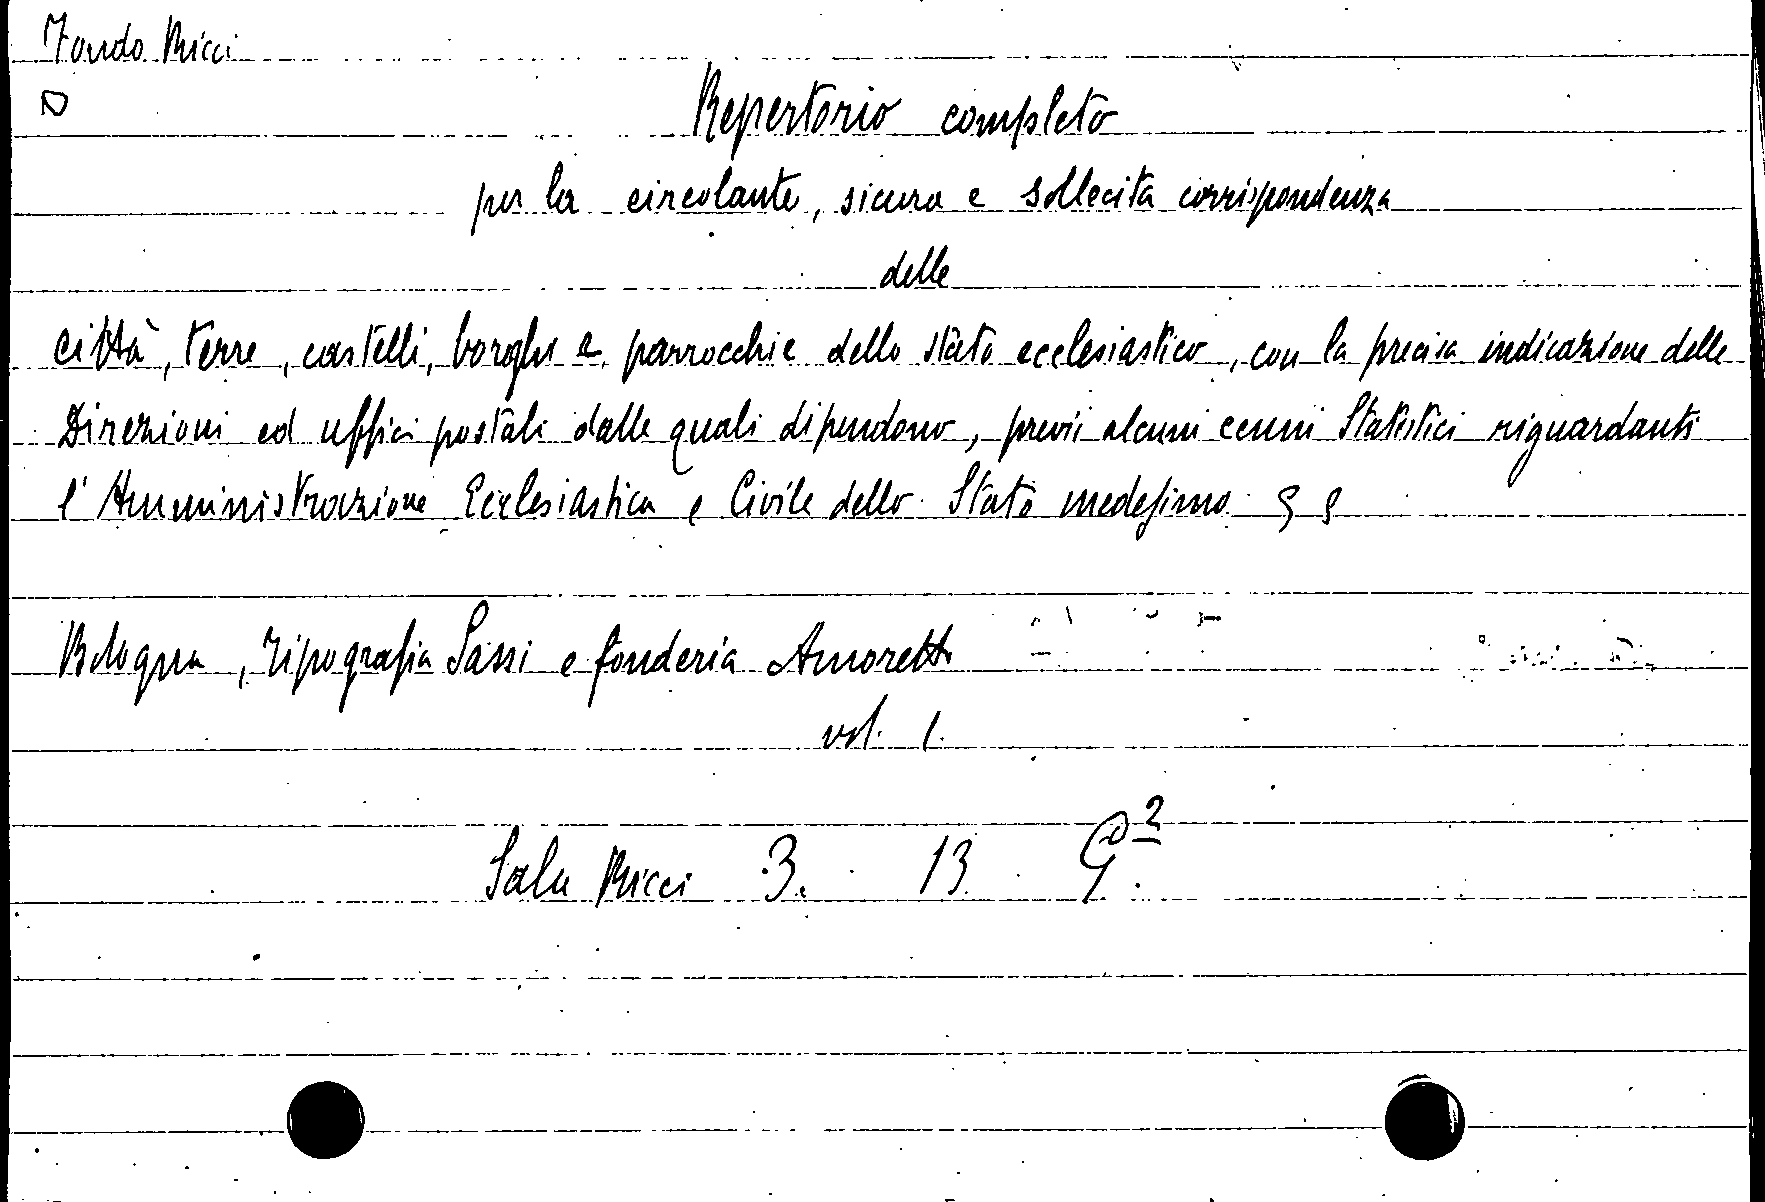 Fondo Ricci
D
Repertorio completo
per la circolante, sicura e sollecita corrispondenza
delle
città, terre, castelli, borghi e parrocchie dello stato ecclesiastico, con la precisa indicazione delle
Direzioni ed uffici postali dalle quali dipendono, previi alcuni cenni Statistici riguardanti
l'Amministrazione Ecclesiastica e Civile dello Stato medesimo
Bologna, Tipografia Sassi e fonderia Amoretti
vol. 1.
Sala Ricci 3. 13